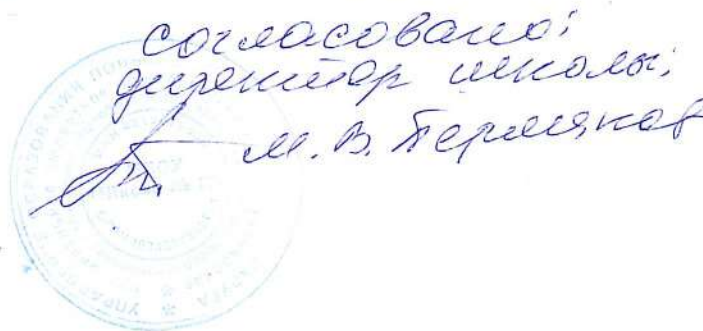 согласовано:
директор школы:
М.В. Пермяков